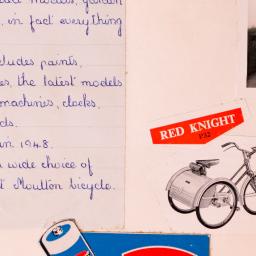 models, garden
, in fact everything
cludes paints,
es, the latest models
machines, clocks,
ds.
in 1948.
wide choice of
t Moulton bicycle.
RED KNIGHT
P32